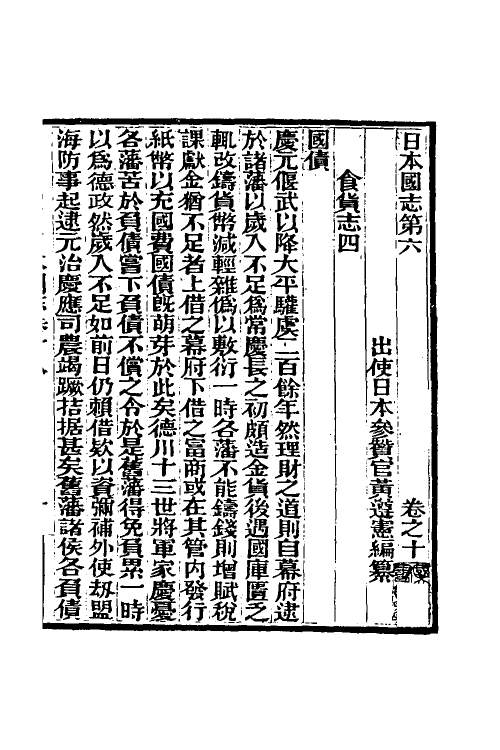 日本國志第六 卷之十
出使日本參贊官黃遵憲編纂
食貨志四
國債
慶元偃武以降大平驩虞二百餘年然理財之道則自幕府逮
於諸藩以歲入不足爲常慶長之初頗造金貨後遇國庫匱乏
輒改鑄貨幣減輕雜僞以敷衍一時各藩不能鑄錢則增賦稅
課獻金猶不足者上借之幕府下借之富商或在其管內發行
紙幣以充國費國債旣萌芽於此矣德川十三世將軍家慶憂
各藩苦於負債嘗下負債不償之令於是舊藩得免負累一時
以爲德政然歲入不足如前日仍賴借欵以資彌補外使刼盟
海防事起逮元治慶應司農竭蹶拮据甚矣舊藩諸侯各負債